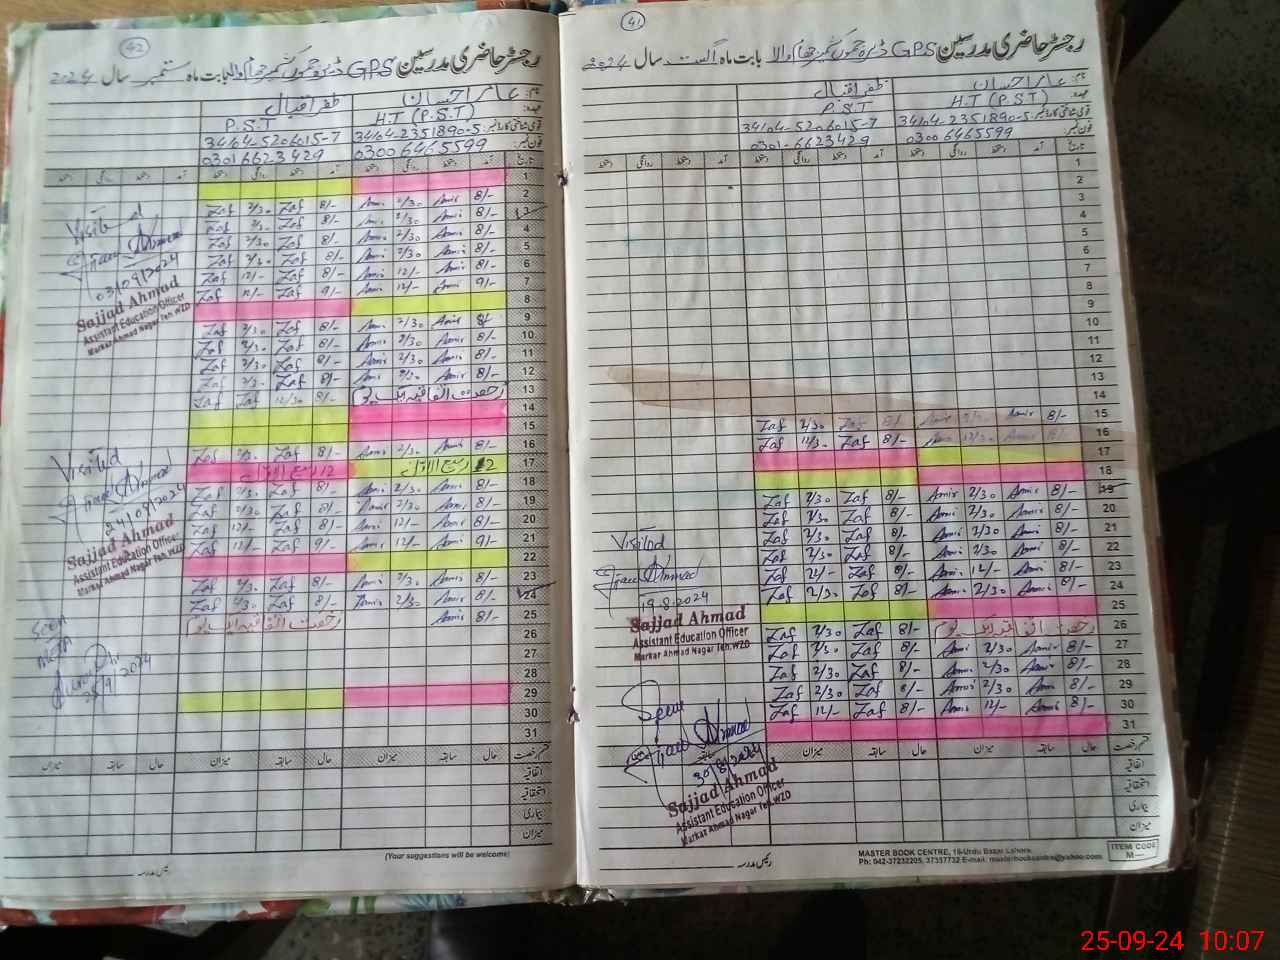 42
رجسٹر حاضری مدرسین GPS ڈیرہ جموں کشمیر جھام والا بابت ماہ ستمبر سال 2024
نام: عامر احسان ظفر اقبال
عہدہ: H.T (P.S.T) P.S.T
قومی شناختی کارڈ نمبر: 34104-2351890-5 34104-5206015-7
فون نمبر: 0300 6465599 0301 6623429
تاریخ آمد دستخط روانگی دستخط آمد دستخط روانگی دستخط
1
2 8/- Amir 2/30 Amir 8/- Zaf 2/30 Zaf
3 8/- Amir 2/30 Amir 8/- Zaf 2/30 Zaf
4 8/- Amir 2/30 Amir 8/- Zaf 2/30 Zaf
5 8/- Amir 2/30 Amir 8/- Zaf 2/30 Zaf
6 8/- Amir 12/- Amir 8/- Zaf 12/- Zaf
7 9/- Amir 12/- Amir 9/- Zaf 12/- Zaf
8
9 8/- Amir 2/30 Amir 8/- Zaf 2/30 Zaf
10 8/- Amir 2/30 Amir 8/- Zaf 2/30 Zaf
11 8/- Amir 2/30 Amir 8/- Zaf 2/30 Zaf
12 8/- Amir 2/30 Amir 8/- Zaf 2/30 Zaf
13 رخصت اتفاقیہ ایک یوم 8/- Zaf 12/30 Zaf
14
15
16 8/- Amir 2/30 Amir 8/- Zaf 2/30 Zaf
17 12 ربیع الاول 12 ربیع الاول
18 8/- Amir 2/30 Amir 8/- Zaf 2/30 Zaf
19 8/- Amir 2/30 Amir 8/- Zaf 2/30 Zaf
20 8/- Amir 12/- Amir 8/- Zaf 12/- Zaf
21 9/- Amir 12/- Amir 9/- Zaf 12/- Zaf
22
23 8/- Amir 2/30 Amir 8/- Zaf 2/30 Zaf
24 8/- Amir 2/30 Amir 8/- Zaf 2/30 Zaf
25 8/- Amir رخصت اتفاقیہ ایک یوم
26
27
28
29
30
31
قسم رخصت حال سابقہ میزان حال سابقہ میزان حال سابقہ میزان
اتفاقیہ
استحقاقیہ
بیماری
میزان
(Your suggestions will be welcome)
رئیس مدرسہ
Visited
Ahmad
03/09/2024
Sajjad Ahmad
Assistant Education Officer
Markaz Ahmad Nagar Teh.WZD
Visited
Ahmad
24/09/2024
Sajjad Ahmad
Assistant Education Officer
Markaz Ahmad Nagar Teh.WZD
Seen
25/9/2024
41
رجسٹر حاضری مدرسین GPS ڈیرہ جموں کشمیر جھام والا بابت ماہ اگست سال 2024
نام: عامر احسان ظفر اقبال
عہدہ: H.T (P.S.T) P.S.T
قومی شناختی کارڈ نمبر: 34104-2351890-5 34104-5206015-7
فون نمبر: 0300 6465599 0301-6623429
تاریخ آمد دستخط روانگی دستخط آمد دستخط روانگی دستخط
1
2
3
4
5
6
7
8
9
10
11
12
13
14
15 8/- Amir 8/- Zaf 2/30 Zaf
16 Amir 12/30 Amir 8/- Zaf 12/30 Zaf
17
18
19 8/- Amir 2/30 Amir 8/- Zaf 2/30 Zaf
20 8/- Amir 2/30 Amir 8/- Zaf 2/30 Zaf
21 8/- Amir 2/30 Amir 8/- Zaf 2/30 Zaf
22 8/- Amir 2/30 Amir 8/- Zaf 2/30 Zaf
23 8/- Amir 12/- Amir 8/- Zaf 12/- Zaf
24 8/- Amir 2/30 Amir 8/- Zaf 2/30 Zaf
25
26 رخصت اتفاقیہ ایک یوم 8/- Zaf 2/30 Zaf
27 8/- Amir 2/30 Amir 8/- Zaf 2/30 Zaf
28 8/- Amir 2/30 Amir 8/- Zaf 2/30 Zaf
29 8/- Amir 2/30 Amir 8/- Zaf 2/30 Zaf
30 8/- Amir 12/- Amir 8/- Zaf 12/- Zaf
31
قسم رخصت حال سابقہ میزان حال سابقہ میزان
اتفاقیہ
استحقاقیہ
بیماری
میزان
Visited
Ahmad
19.8.2024
Sajjad Ahmad
Assistant Education Officer
Markaz Ahmad Nagar Teh.WZD
Seen
Ahmad
30/8/2024
Sajjad Ahmad
Assistant Education Officer
Markaz Ahmad Nagar Teh.WZD
رئیس مدرسہ
MASTER BOOK CENTRE, 16-Urdu Bazar Lahore.
Ph: 042-37232205, 37357732 E-mail: masterbookcentre@yahoo.com
ITEM CODE
M—
25-09-24 10:07